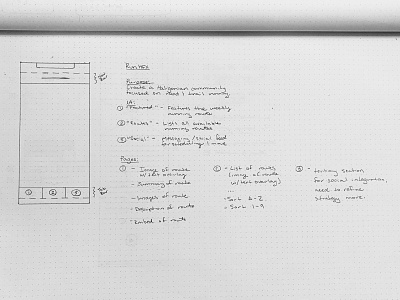 Purpose:
Create a Tasmanian community
focused on road & trail running
IA:
① "Featured" - Features the weekly
running route
② "Routes" - Lists all available
running routes
③ "Social" - Messaging / social feed
for scheduling & more
① ② ③
Pages:
① - Image of route
w/ text overlay
- Summary of route
- Images of route
- Description of route
- Embed of route
② - List of routes
(image of route
w/ text overlay)
...
- Sort A-Z
- Sort 1-9
③ - tertiary station
for social integration,
need to refine
strategy more.